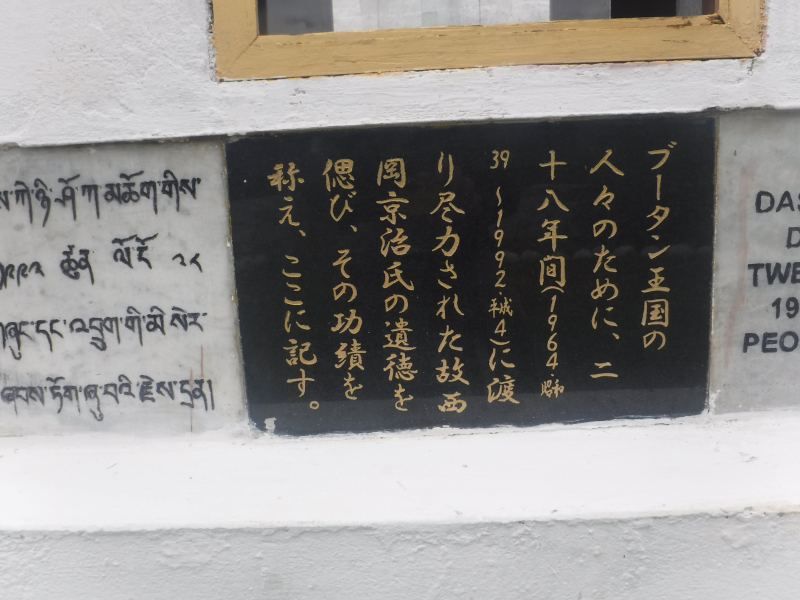 ས་ཀེ་ཉི་ཤོ་ཀ་མཆོག་གིས་
༡༩༩༢ ཚུན་ ལོ་ངོ་ ༢༨
གཞུང་དང་འབྲུག་གི་མི་སེར་
ཞབས་ཏོག་ཞུ་བའི་རྗེས་དྲན།
ブータン王国の
人々のために、二
十八年間(1964・昭和
39～1992・平成4)に渡
り尽力された故西
岡京治氏の遺徳を
偲び、その功績を
称え、ここに記す。
DAS
D
TWE
19
PEO